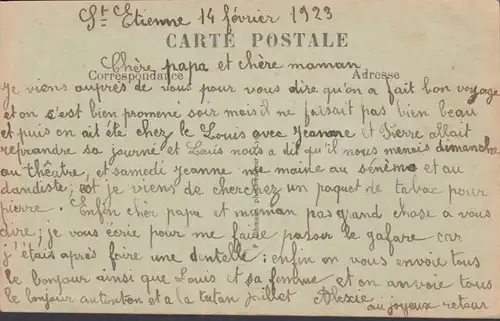 St Etienne 14 février 1923
CARTE POSTALE
Chère papa et chère maman
Correspondance Adresse
Je viens auprès de vous pour vous dire qu'on a fait bon voyage
et on s'est bien promené soir mais il ne faisait pas bien beau
et puis on ait été chez le Louis avec Jeanne et Pierre allait
reprandre sa journé et Louis nous a dit qu'il nous menais dimanche
au théâtre, et samedi Jeanne me maine au sénéma et au
dandiste, et je viens de cherchez un paquet de tabac pour
pierre. Enfin chèr papa et maman pas grand chose a vous
dire; je vous ecrie pour me faire passer le gafare car
j'étais après faire une dentelle: enfin on vous envoie tous
le bonjour ainsi que Louis et sa femme et on anvoie tous
le bonjour au tonton et a la tatan Jaillet Alexie
au joyeux retour